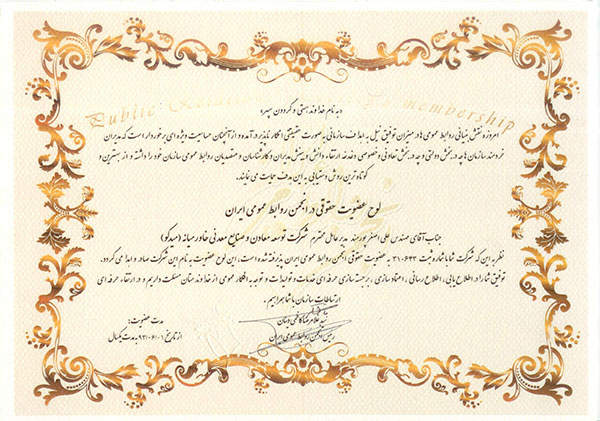 «به نام خداوند هستی و گردون سپهر»
Public Relations membership
امروزه نقش بنیانی روابط عمومی ها در میزان توفیق نیل به اهداف سازمانی به صورت حقیقتی انکار ناپذیر درآمده و از آنچنان حساسیت ویژه ای برخوردار است که مدیران
خردمند سازمان ها چه در بخش دولتی و چه در بخش تعاونی و خصوصی دغدغه ارتقاء دانش و بینش مدیران و کارشناسان و متصدیان روابط عمومی سازمان خود را داشته و از بهترین و
کوتاه ترین روش دستیابی به این هدف حمایت می نمایند.
لوح عضویت حقوقی در انجمن روابط عمومی ایران
جناب آقای مهندس علی اصغر پورمند مدیرعامل محترم شرکت توسعه معادن و صنایع معدنی خاورمیانه (میدکو)
نظر به این که شرکت شما با شماره ثبت ۳۱۰۶۴۳ به عضویت حقوقی انجمن روابط عمومی ایران پذیرفته شده است، این لوح عضویت به نام این شرکت صادر و اهدا می گردد.
توفیق شما را در اطلاع یابی، اطلاع رسانی، اعتمادسازی، برجسته سازی حرفه ای خدمات و تولیدات و توجه به افکار عمومی از خداوند منان مسئلت داریم و در ارتقاء حرفه ای
ارتباطات سازمان با شما همراهیم.
سید غلامرضا کاظمی دینان
رئیس انجمن روابط عمومی ایران
مدت عضویت:
از تاریخ ۹۳/۰۶/۰۱ به مدت یکسال